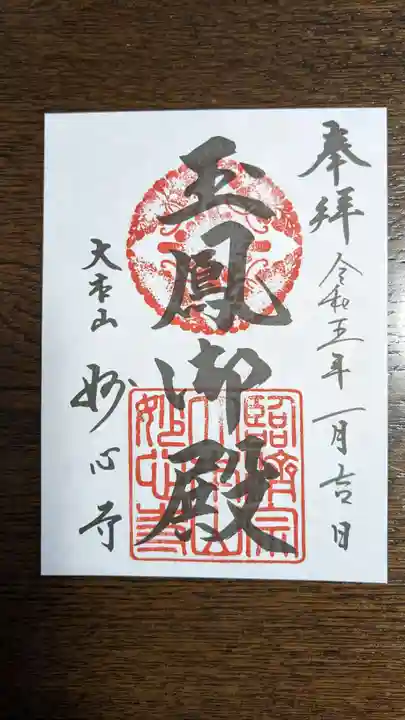 奉拝
令和五年一月吉日
玉鳳御殿
臨済宗
大本山
妙心寺
大本山
妙心寺